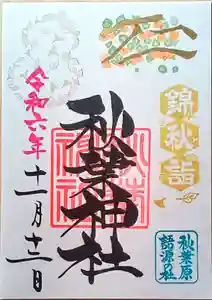 錦秋詣
秋葉原
語源の社
秋葉神社
令和六年
十一月十二日